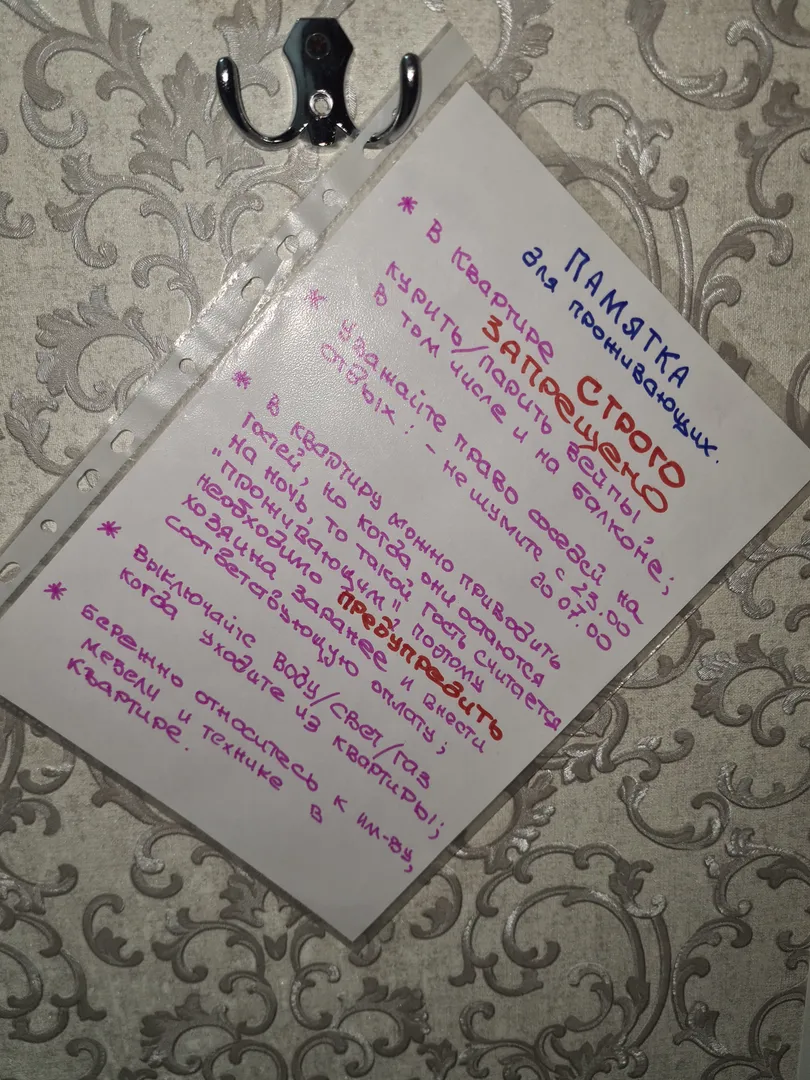 ПАМЯТКА
для проживающих.
* В квартире СТРОГО
ЗАПРЕЩЕНО
курить/парить вейпы,
в том числе и на балконе;
* Уважайте право соседей на
отдых: - не шумите с 23.00
до 07.00
* В квартиру можно приводить
гостей, но когда они остаются
на ночь, то такой гость считается
"проживающим", поэтому
необходимо предупредить
хозяина заранее и внести
соответствующую оплату;
* Выключайте воду/свет/газ
когда уходите из квартиры;
* Бережно относитесь к им-ву,
мебели и технике в
квартире.